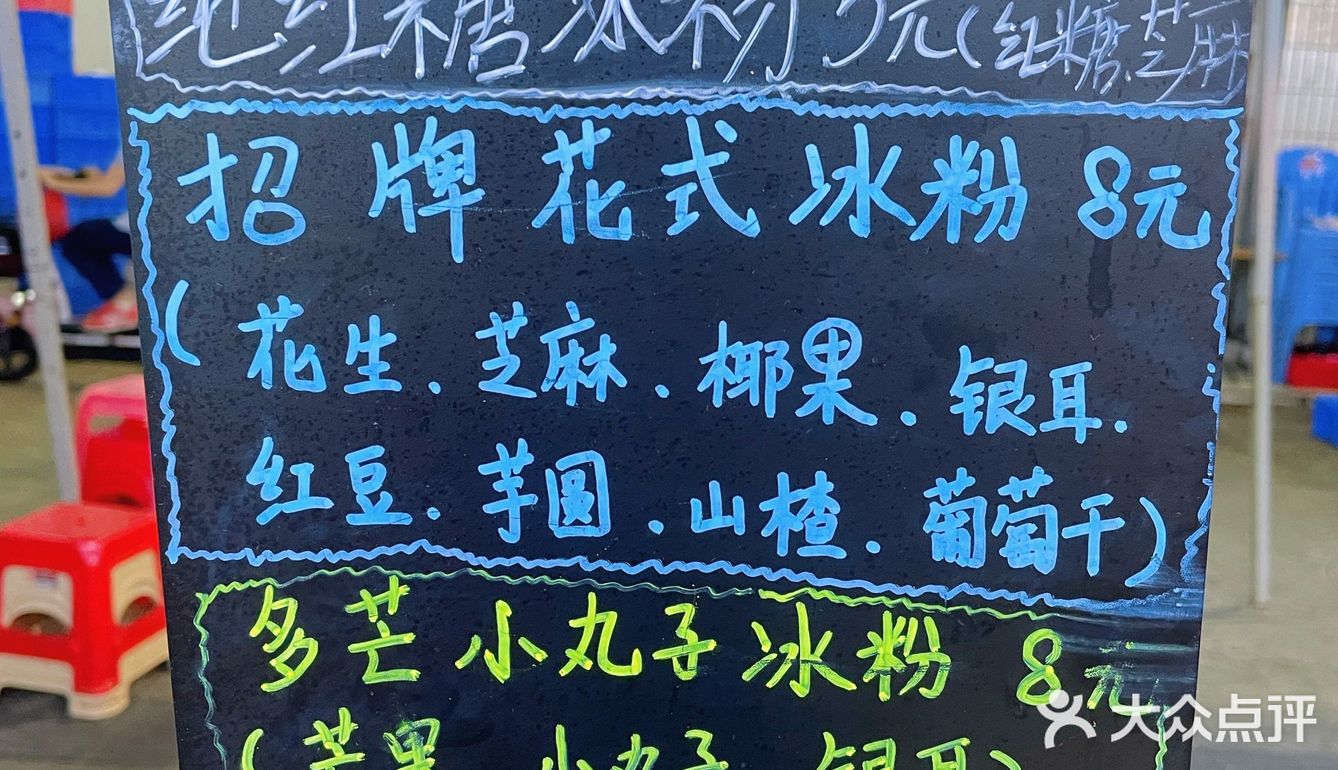 纯红糖冰粉5元(红糖、芝麻
招牌花式冰粉 8元
(花生、芝麻、椰果、银耳、
红豆、芋圆、山楂、葡萄干)
多芒小丸子冰粉 8元
(芒果、小丸子、银耳)
大众点评